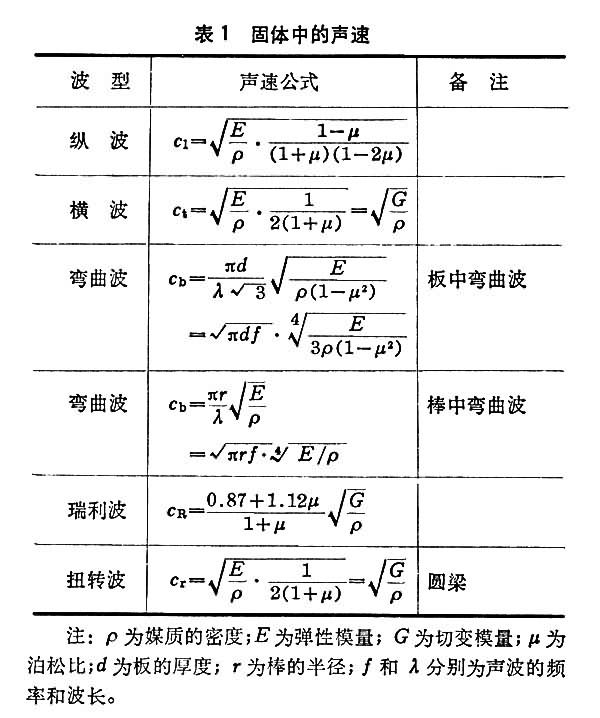 表1 固体中的声速
波 型 声速公式 备 注
纵 波 c₁=√(E/ρ · (1−μ)/((1+μ)(1−2μ)))
横 波 cₜ=√(E/ρ · 1/(2(1+μ)))=√(G/ρ)
弯曲波 c_b=πd/(λ√3) √(E/(ρ(1−μ²))) 板中弯曲波
=√(πdf) · ∜(E/(3ρ(1−μ²)))
弯曲波 c_b=πr/λ √(E/ρ) 棒中弯曲波
=√(πrf) · ∜(E/ρ)
瑞利波 c_R=(0.87+1.12μ)/(1+μ) √(G/ρ)
扭转波 c_r=√(E/ρ · 1/(2(1+μ)))=√(G/ρ) 圆梁
注: ρ为媒质的密度;E为弹性模量; G为切变模量; μ为
泊松比;d为板的厚度; r为棒的半径; f和 λ分别为声波的频
率和波长。